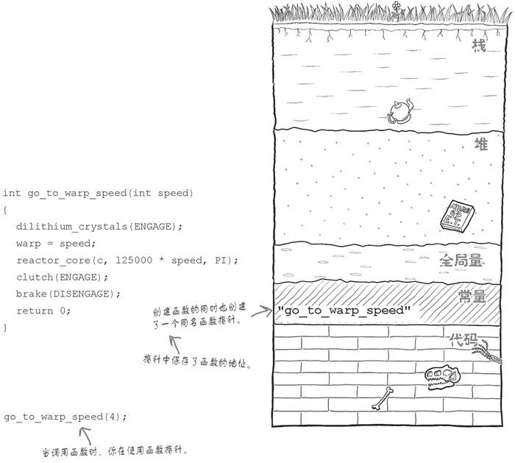 栈
堆
全局量
常量
"go_to_warp_speed"
代码
int go_to_warp_speed(int speed)
{
dilithium_crystals(ENGAGE);
warp = speed;
reactor_core(c, 125000 * speed, PI);
clutch(ENGAGE);
brake(DISENGAGE);
return 0;
}
创建函数的同时也创建
了一个同名函数指针。
指针中保存了函数的地址。
go_to_warp_speed(4);
当调用函数时，你在使用函数指针。